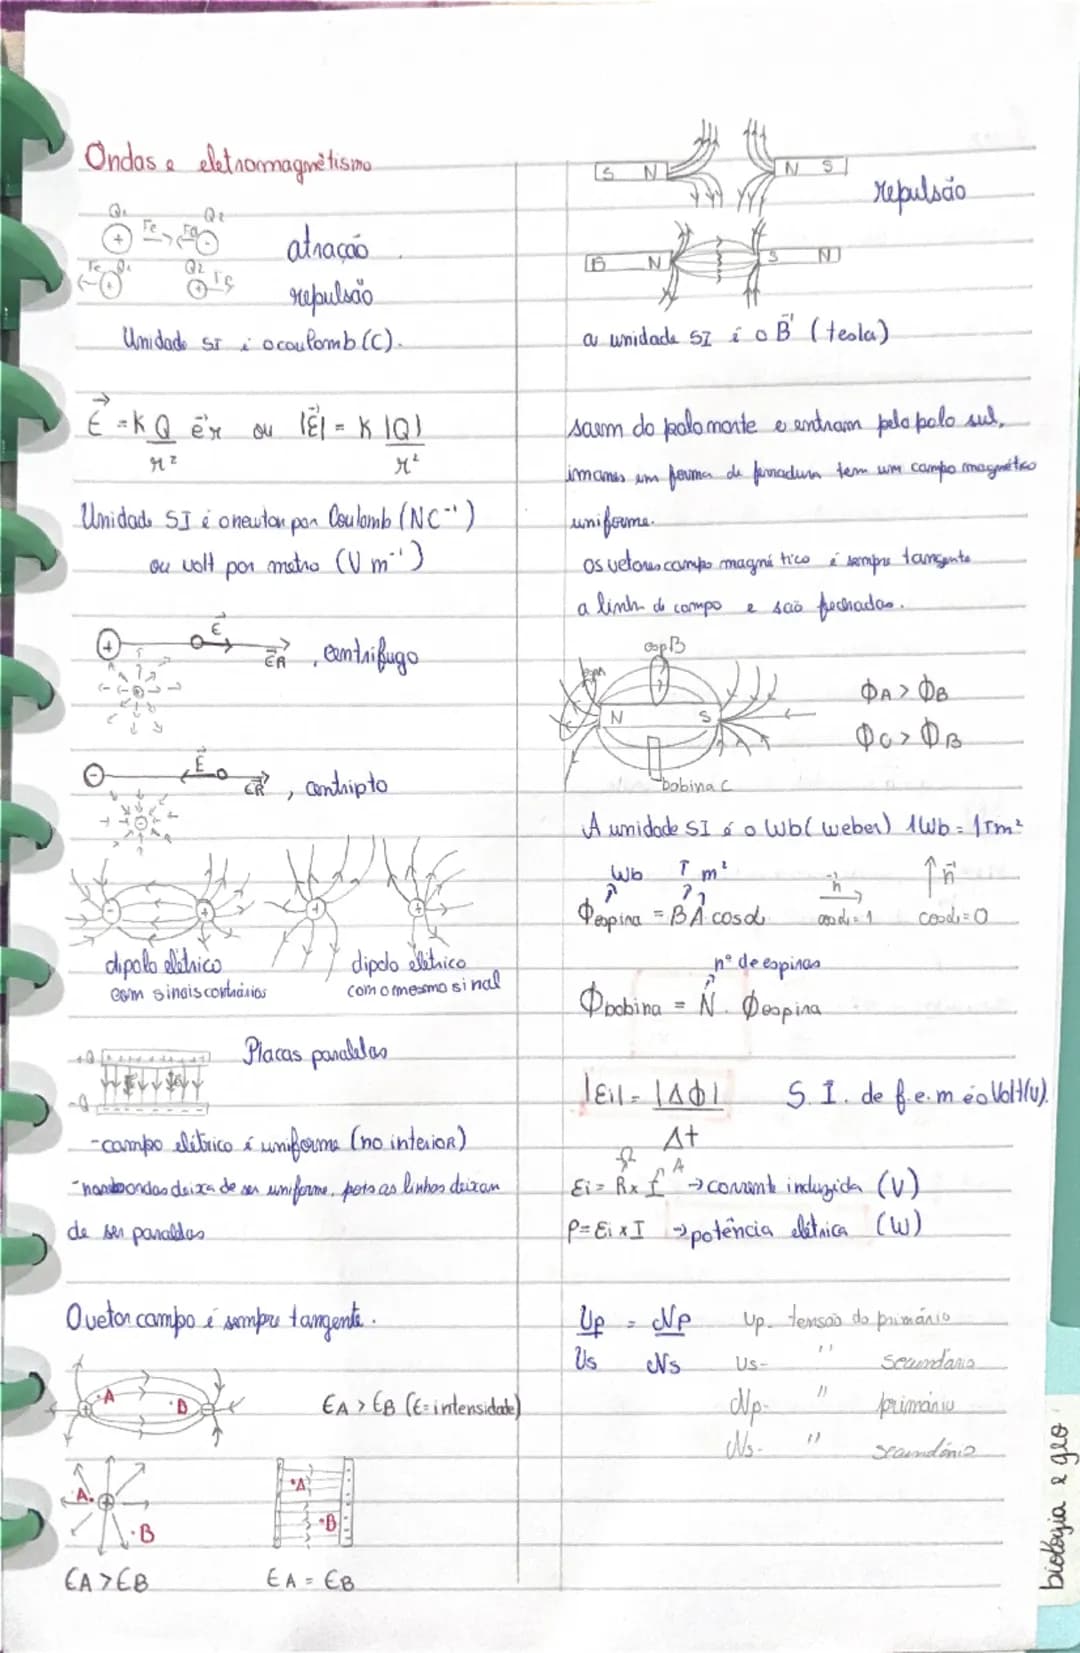 Ondas e eletromagnetismo
Q1 Q2
+ Fe Fe -
atração
Fe Q1 Q2 Fe
+ +
repulsão
Unidade SI é o coulomb (C).
E = K Q er ou |E| = K |Q|
r² r²
Unidade SI é o newton por Coulomb (NC⁻¹)
ou volt por metro (V m⁻¹)
+ E
, centrifugo
- E
, centripto
dipolo elétrico
com sinais contrários
dipolo elétrico
com o mesmo sinal
+Q
-Q
Placas paralelas
-campo elétrico é uniforme (no interior)
deixa de ser uniforme, pois as linhas deixam
de ser paralelas
O vetor campo é sempre tangente.
+ A B -
EA > EB (E=intensidade)
A. + .B
EA > EB
.A .B
EA = EB
S N N S
repulsão
N S N
a unidade SI é o B (tesla)
saem do polo norte e entram pelo polo sul,
imanes em forma de ferradura tem um campo magnético
uniforme.
os vetores campo magnético é sempre tangente
a linha de campo e são fechadas.
esp B
N S
bobina C
ΦA > ΦB
ΦC > ΦB
A unidade SI é o Wb (weber) 1Wb = 1Tm²
Wb T m²
Φespira = B A cosα
n cosα=1
n cosα=0
nº de espiras
Φbobina = N . Φespira
|Ei| = |ΔΦ|
Δt
S.I. de f.e.m é o Volt(v).
Ω A
Ei = R x I → corrente induzida (V)
P = Ei x I → potência elétrica (W)
Up = Np
Us Ns
Up- tensão do primário
Us- '' secundário
Np- '' primário
Ns- '' secundário
biologia e geo